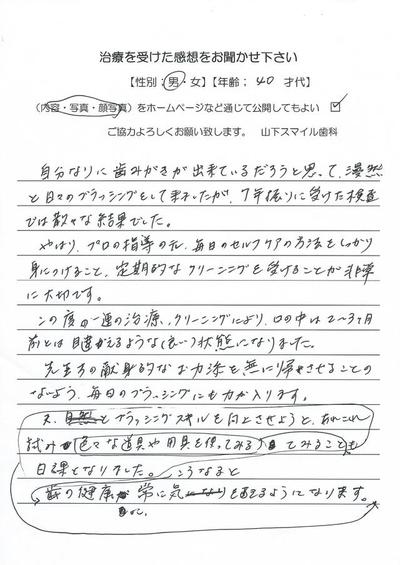 治療を受けた感想をお聞かせ下さい
【性別:男・女】【年齢; 40 才代】
(内容・写真・顔写真)をホームページなど通じて公開してもよい
ご協力よろしくお願い致します。 山下スマイル歯科
自分なりに歯みがきが出来ているだろうと思って、漫然
と日々のブラッシングをして来ましたが、7年振りに受けた検査
では散々な結果でした。
やはり、プロの指導の元、毎日のセルフケアの方法をしっかり
身につけること、定期的なクリーニングを受けることが非常
に大切です。
この度の一連の治療、クリーニングにより、口の中は2〜3ヶ月
前とは見違えるような(良い)状態になりました。
先生方の献身的なお力添を無に帰させることの
ないよう、毎日のブラッシングにも力が入ります。
又、自然とブラッシングスキルを向上させようと、あれこれ
試み 色々な道具や用具を使ってみる てみることも
日課となりました。 こうなると
歯の健康 常に気 をするようになります。